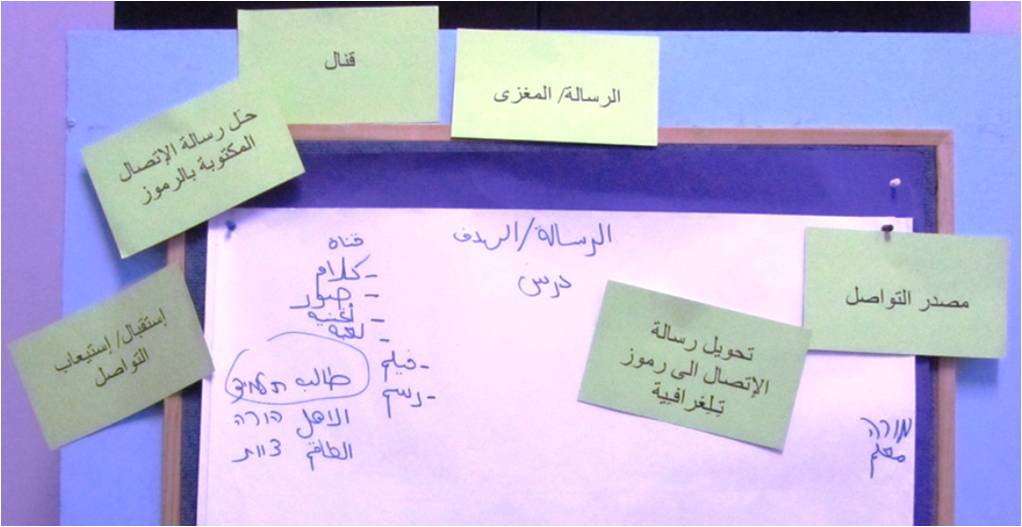 قنال
الرسالة/ المغزى
حل رسالة الإتصال
المكتوبة بالرموز
إستقبال/ إستيعاب
التواصل
مصدر التواصل
تحويل رسالة
الإتصال الى رموز
تلغرافية
الرسالة/الهدف
درس
قناة
- كلام
- صور
- أغنيه
- لعبة
- فيلم
- رسم
طالب תלמיד
الاهل הורה
الطاقم צוות
מורה
معلم